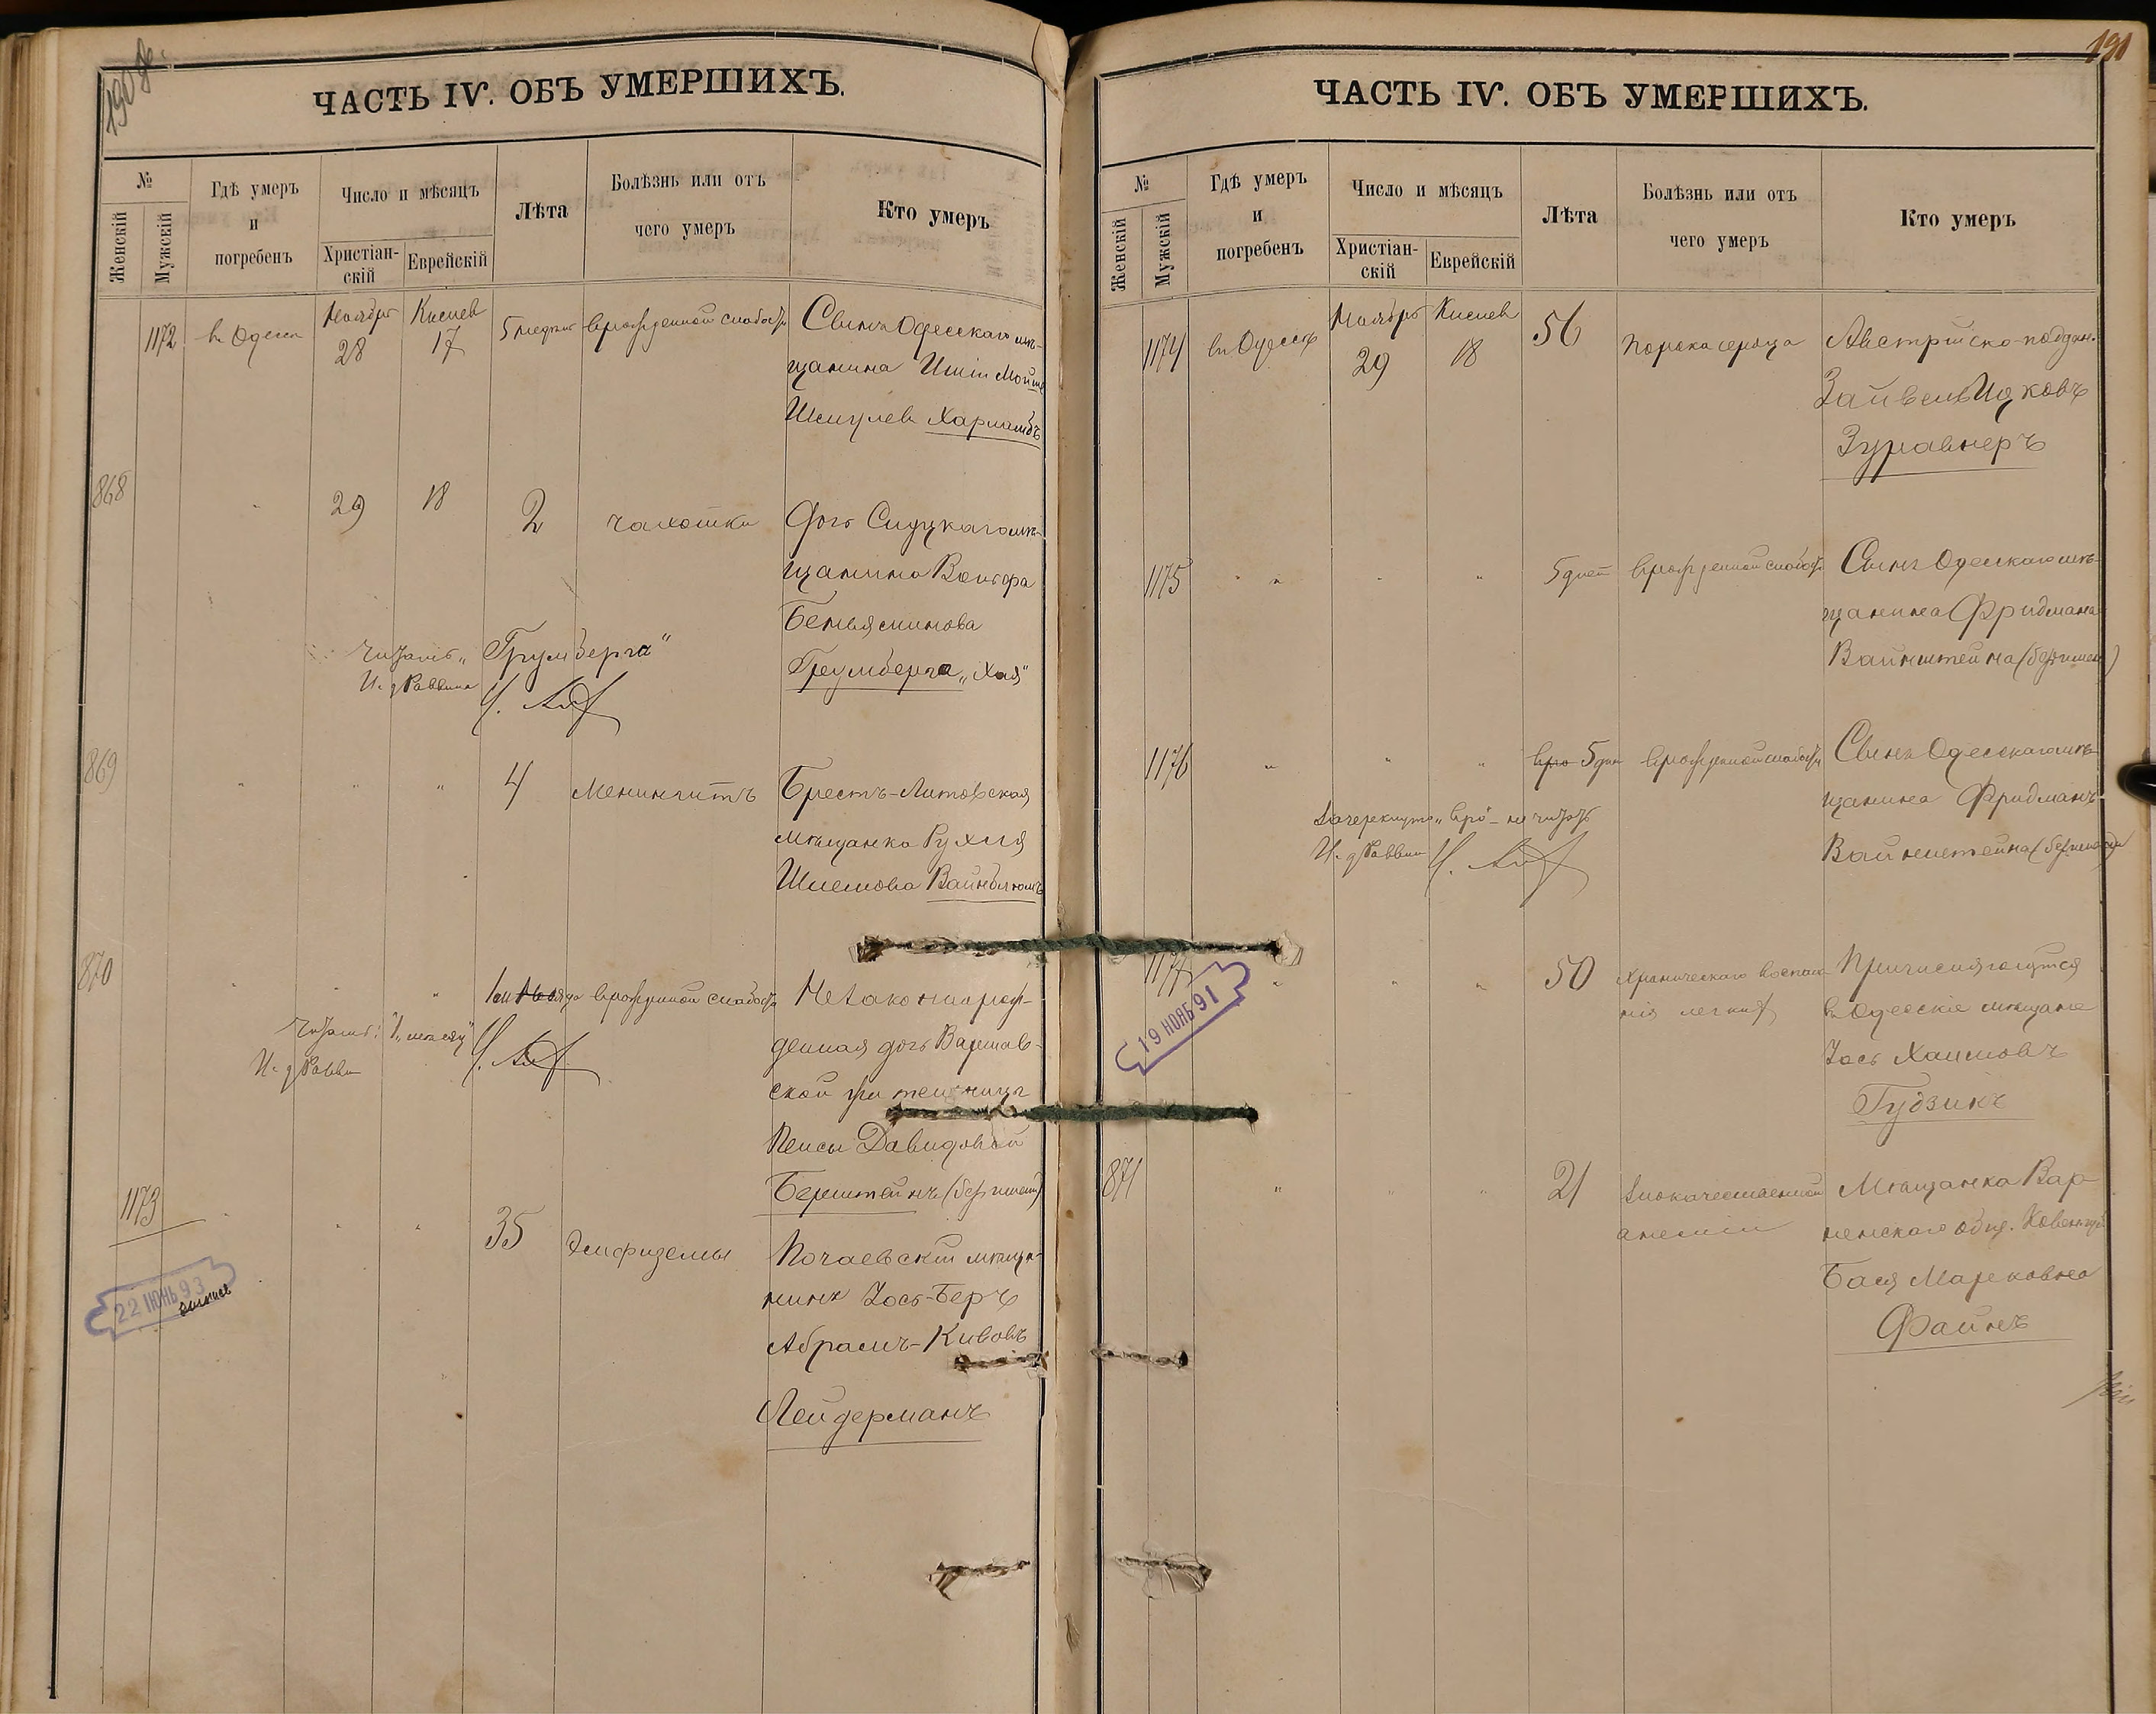 190об.
ЧАСТЬ IV. ОБЪ УМЕРШИХЪ.
№
Женскій
Мужскій
Гдѣ умеръ
и
погребенъ
Число и мѣсяцъ
Христіан-
скій
Еврейскій
Лѣта
Болѣзнь или отъ
чего умеръ
Кто умеръ
1172
въ Одессѣ
Ноября
28
Кислев
17
врожденной слабости
Сынъ Одесскаго мѣ-
щанина
Шмулев
868
29
18
2
чахотки
Дочь Слуцкаго мѣ-
щанина Вольфа
Беньяминова
Греумберга „Хая"
Читать „Грумберга"
И. д. Раввина
869
"
"
"
4
Менингитъ
Брестъ-Литовская
мѣщанка Рухля
Шлемова Вайнблюмъ
870
"
врожденной слабости
Незаконнорож-
денная дочь Варшав-
ской жительницы
Песи Давидовой
Бернштейнъ
Читать: „1 мѣсяц"
И. д. Раввин
1173
35
Эмфиземы
Почаевскій мѣща-
нинъ Іось-Беръ
Абрамъ-Кивовъ
Лейдерманъ
22 ІЮНЬ 93
выпись
191
ЧАСТЬ IV. ОБЪ УМЕРШИХЪ.
№
Женскій
Мужскій
Гдѣ умеръ
и
погребенъ
Число и мѣсяцъ
Христіан-
скій
Еврейскій
Лѣта
Болѣзнь или отъ
чего умеръ
Кто умеръ
1174
въ Одессѣ
Ноябрь
29
Кислев
18
56
Порока сердца
Австрійско-поддан.
Зайвель Ицковъ
Зуравнеръ
1175
"
"
5 дней
врожденной слабости
Сынъ Одесскаго мѣ-
щанина Фридмана
Вайнштейна
1176
"
"
"
вро 5 дней
врожденной слабости
Сынъ Одесскаго мѣ-
щанина Фридманъ
Вайнштейна
Зачеркнуто „вро" – не читать
И. д. Раввин
1177
"
"
50
хроническаго воспале-
нія легких
Причисляющійся
въ Одесскіе мѣщане
Іось Хаимовъ
Гудзикъ
19 НОЯБ 91
871
"
"
"
21
Злокачественной
анеміи
Мѣщанка Вар-
ненскаго общ. Ковен. губ.
Бася Марковна
Файнъ